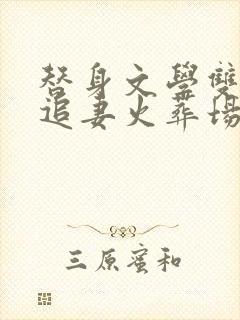 替身文學雙
追妻火葬場
三原蜜和